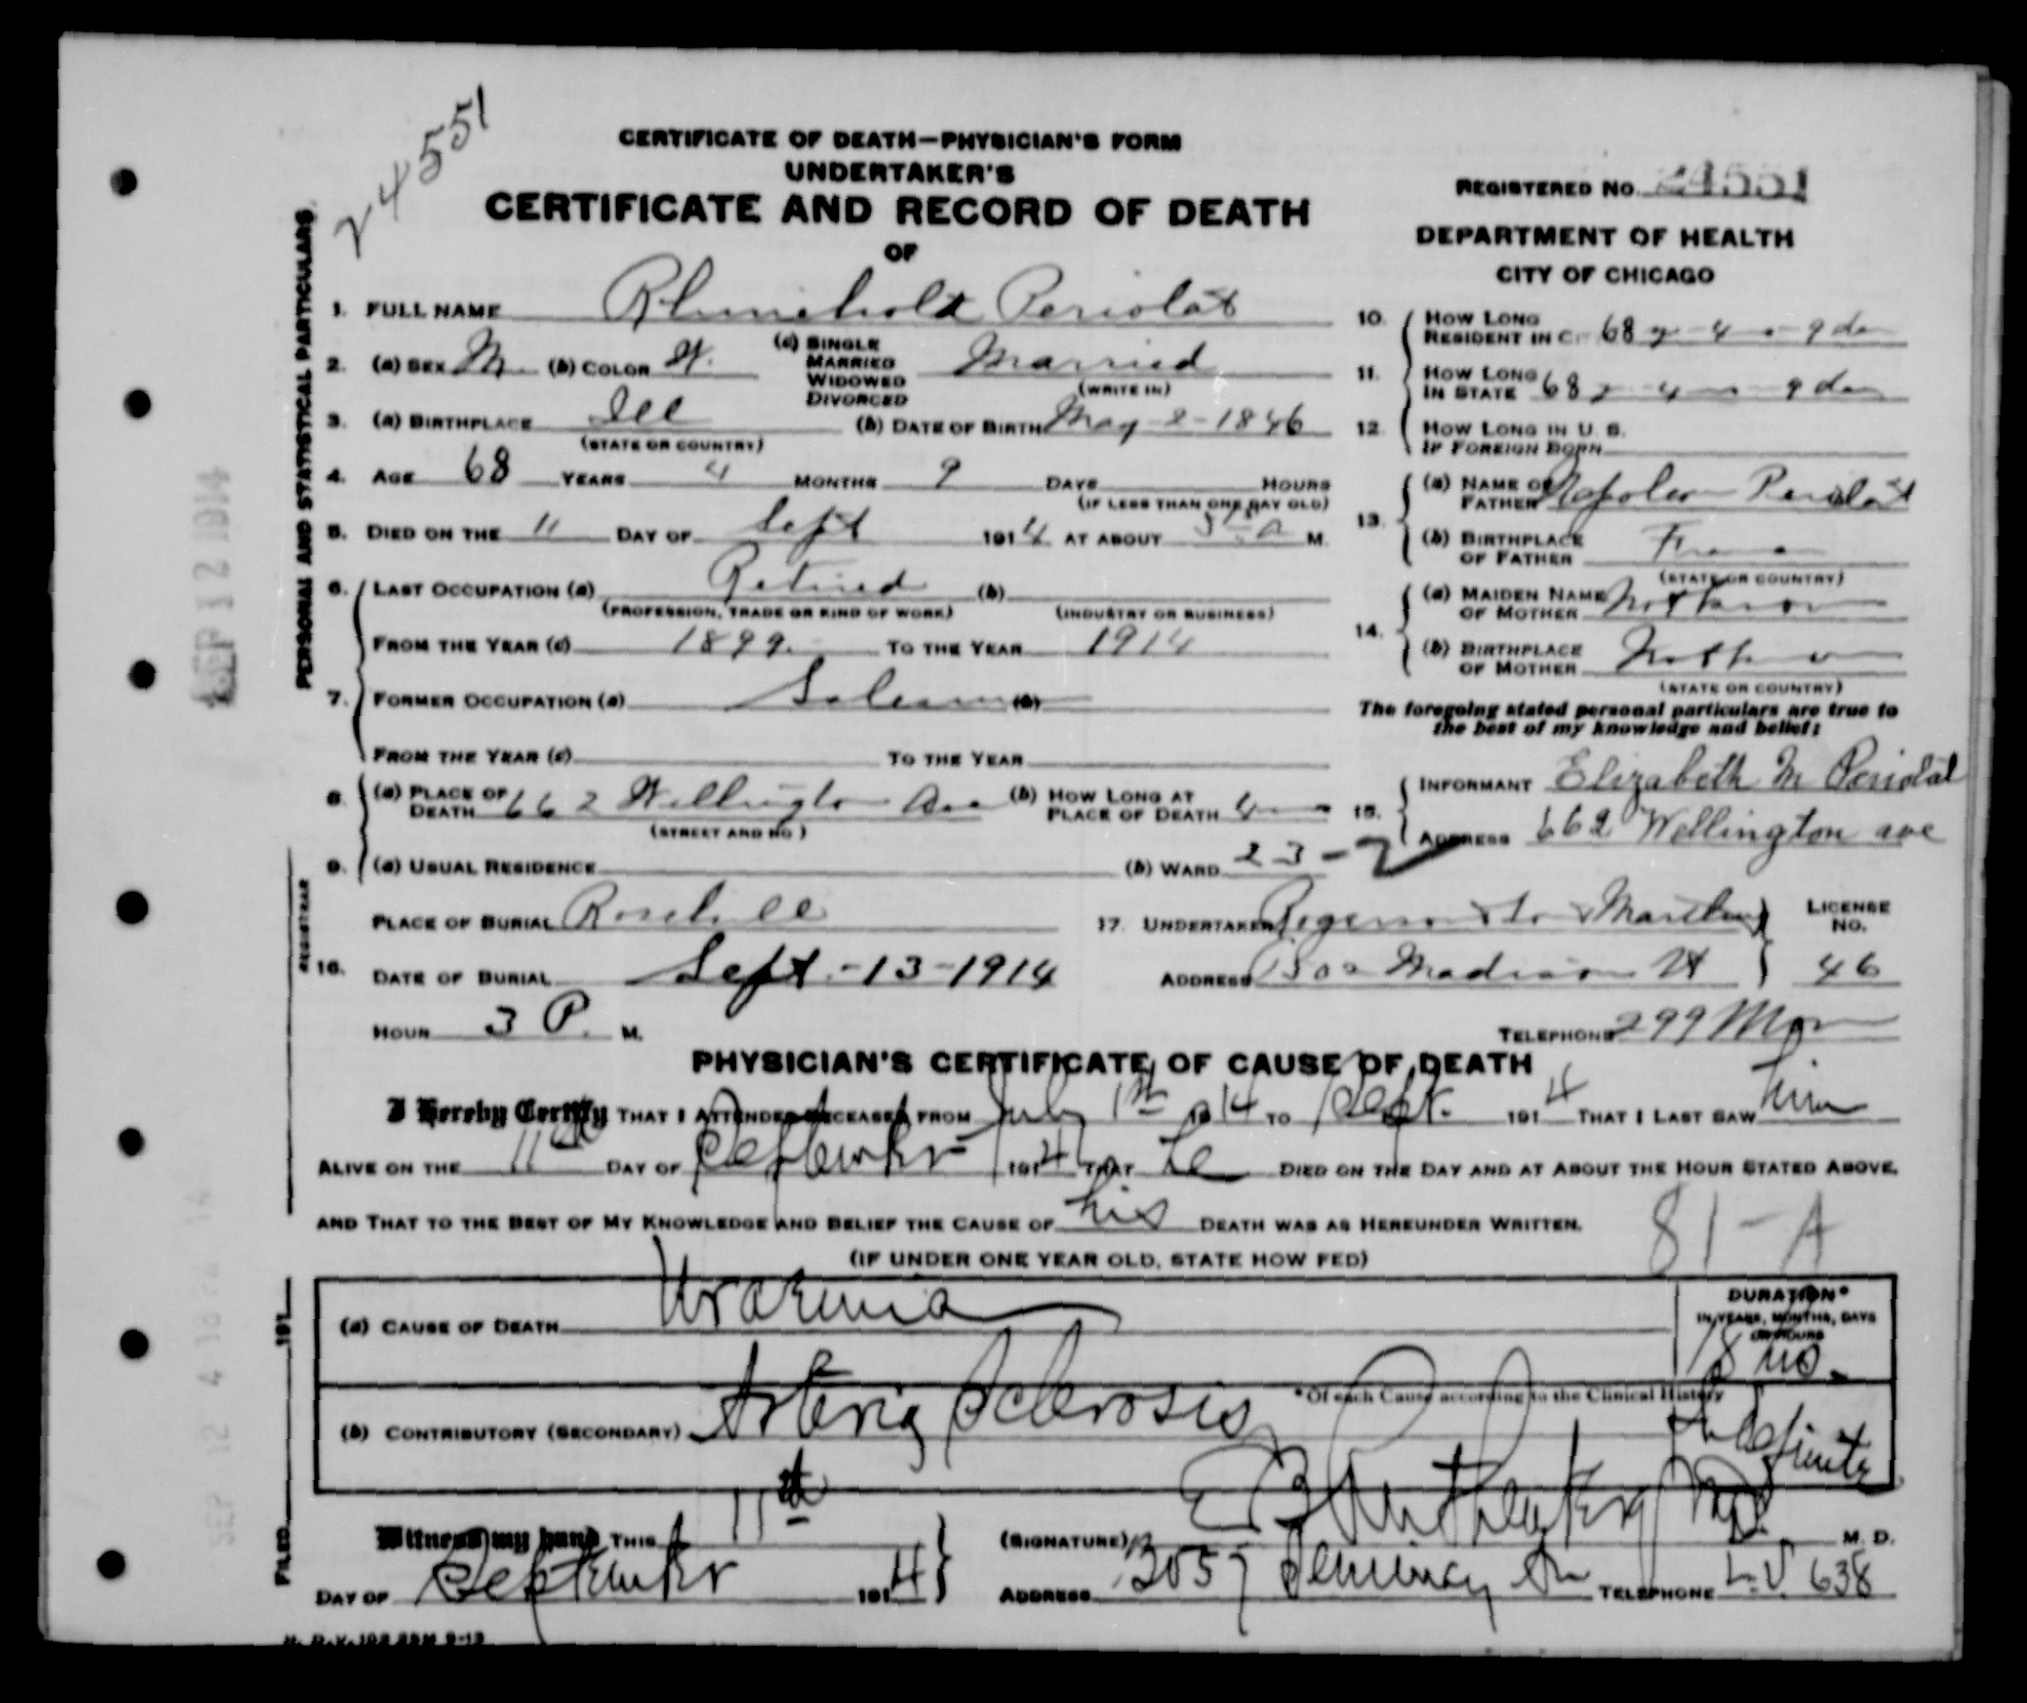 24551
CERTIFICATE OF DEATH—PHYSICIAN'S FORM
UNDERTAKER'S
CERTIFICATE AND RECORD OF DEATH
OF
REGISTERED NO. 24551
DEPARTMENT OF HEALTH
CITY OF CHICAGO
PERSONAL AND STATISTICAL PARTICULARS
1. FULL NAME Rhinehold Periolat
2. (a) SEX M. (b) COLOR W. (c) SINGLE MARRIED WIDOWED DIVORCED Married
(WRITE IN)
3. (a) BIRTHPLACE Ill (b) DATE OF BIRTH May 2-1846
(STATE OR COUNTRY)
4. AGE 68 YEARS 4 MONTHS 9 DAYS HOURS
(IF LESS THAN ONE DAY OLD)
5. DIED ON THE 11 DAY OF Sept 1914 AT ABOUT A M.
6. LAST OCCUPATION (a) Retired (b)
(PROFESSION, TRADE OR KIND OF WORK) (INDUSTRY OR BUSINESS)
FROM THE YEAR (c) 1899. TO THE YEAR 1914
7. FORMER OCCUPATION (a) Salesman (b)
FROM THE YEAR (c) TO THE YEAR
8. (a) PLACE OF DEATH 662 Wellington Ave (b) HOW LONG AT PLACE OF DEATH 4
9. (STREET AND NO.)
(a) USUAL RESIDENCE (b) WARD 23-2
10. HOW LONG RESIDENT IN C 68 y 4 9 da
11. HOW LONG IN STATE 68 y 4 9 da
12. HOW LONG IN U. S. IF FOREIGN BORN
13. (a) NAME OF FATHER Napoleon Periolat
(b) BIRTHPLACE OF FATHER France
(STATE OR COUNTRY)
14. (a) MAIDEN NAME OF MOTHER Not known
(b) BIRTHPLACE OF MOTHER Not known
(STATE OR COUNTRY)
The foregoing stated personal particulars are true to
the best of my knowledge and belief:
15. INFORMANT Elizabeth M Periolat
ADDRESS 662 Wellington ave
REGISTRAR
16. PLACE OF BURIAL Rosehill
DATE OF BURIAL Sept.-13-1914
HOUR 3 P. M.
17. UNDERTAKER LICENSE NO.
ADDRESS Madison St 46
TELEPHONE 299 Mon
PHYSICIAN'S CERTIFICATE OF CAUSE OF DEATH
I Hereby Certify THAT I ATTENDED DECEASED FROM July 1st 1914 TO Sept. 1914 THAT I LAST SAW him
ALIVE ON THE 11th DAY OF September 1914 THAT he DIED ON THE DAY AND AT ABOUT THE HOUR STATED ABOVE,
AND THAT TO THE BEST OF MY KNOWLEDGE AND BELIEF THE CAUSE OF his DEATH WAS AS HEREUNDER WRITTEN.
81-A
(IF UNDER ONE YEAR OLD, STATE HOW FED)
(a) CAUSE OF DEATH Uraemia
DURATION*
IN YEARS, MONTHS, DAYS
OR HOURS
18 mo.
*Of each Cause according to the Clinical History
(b) CONTRIBUTORY (SECONDARY) Arterio Sclerosis Indefinite
Witness my hand THIS 11th
DAY OF September 1914
(SIGNATURE) M. D.
ADDRESS 2057 Seminary Av TELEPHONE L.V. 638
FILED 191
SEP 12 1914
H. D. V. 102 25M 9-13